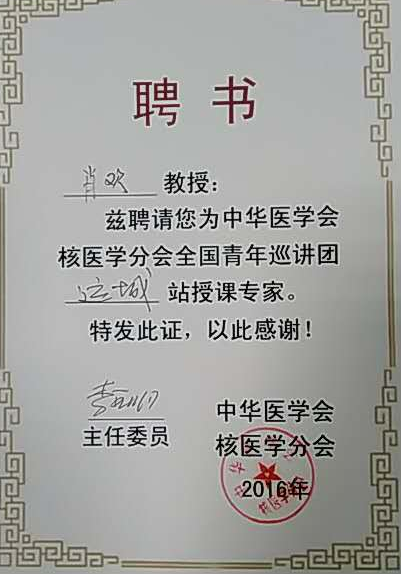 聘书
肖欢 教授：
兹聘请您为中华医学会
核医学分会全国青年巡讲团
运城 站授课专家。
特发此证，以此感谢！
主任委员
中华医学会
核医学分会
2016年